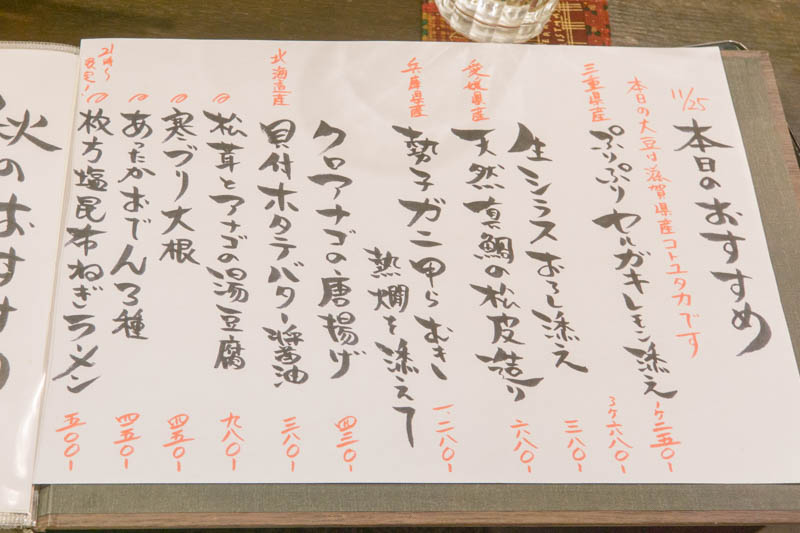 11/25
本日のおすすめ
本日の大豆は滋賀県産コトユタカです
三重県産
ぷりぷりセルガキレモン添え
1ケ二五〇-
3ケ六八〇-
生シラスおろし添え
三八〇-
愛媛県産
天然真鯛の松皮造り
六八〇-
兵庫県産
勢子ガニ甲らむきし
熱燗を添えて
一、二八〇-
クロアナゴの唐揚げ
四三〇-
北海道産
貝付ホタテバター醤油
三八〇-
松茸とアナゴの湯豆腐
九八〇-
寒ブリ大根
四五〇-
あったかおでん3種
四五〇-
21時〜
限定!
枚方塩昆布ねぎラーメン
五〇〇-
秋のおすすめ